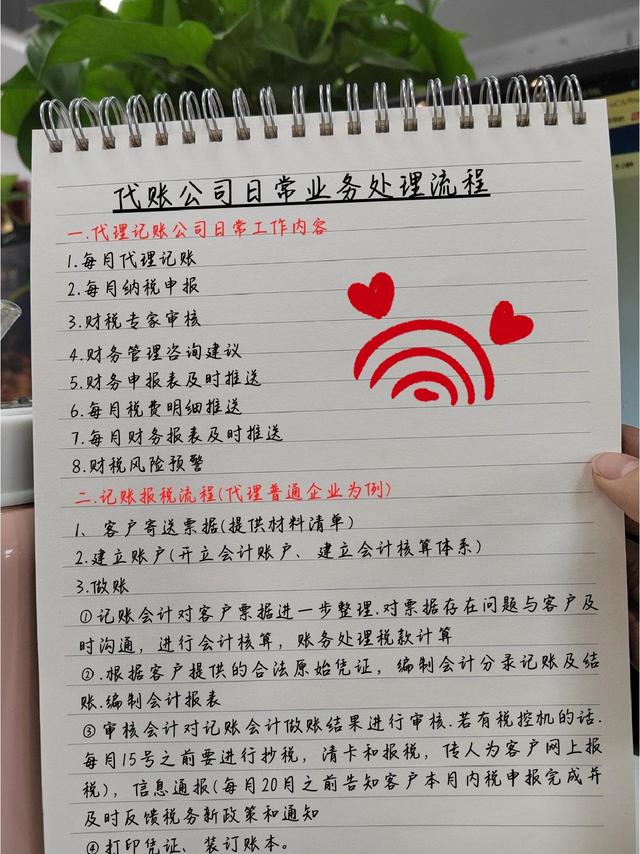 代账公司日常业务处理流程
一.代理记账公司日常工作内容
1.每月代理记账
2.每月纳税申报
3.财税专家审核
4.财务管理咨询建议
5.财务申报表及时推送
6.每月税费明细推送
7.每月财务报表及时推送
8.财税风险预警
二.记账报税流程(代理普通企业为例)
1、客户寄送票据(提供材料清单)
2.建立账户(开立会计账户、建立会计核算体系)
3.做账
①记账会计对客户票据进一步整理.对票据存在问题与客户及
时沟通，进行会计核算，账务处理税款计算
②.根据客户提供的合法原始凭证，编制会计分录记账及结
账.编制会计报表
③审核会计对记账会计做账结果进行审核.若有税控机的话.
每月15号之前要进行抄税，清卡和报税，传人为客户网上报
税)，信息通报(每月20月之前告知客户本月内税申报完成并
及时反馈税务新政策和通知
④打印凭证、装订账本。